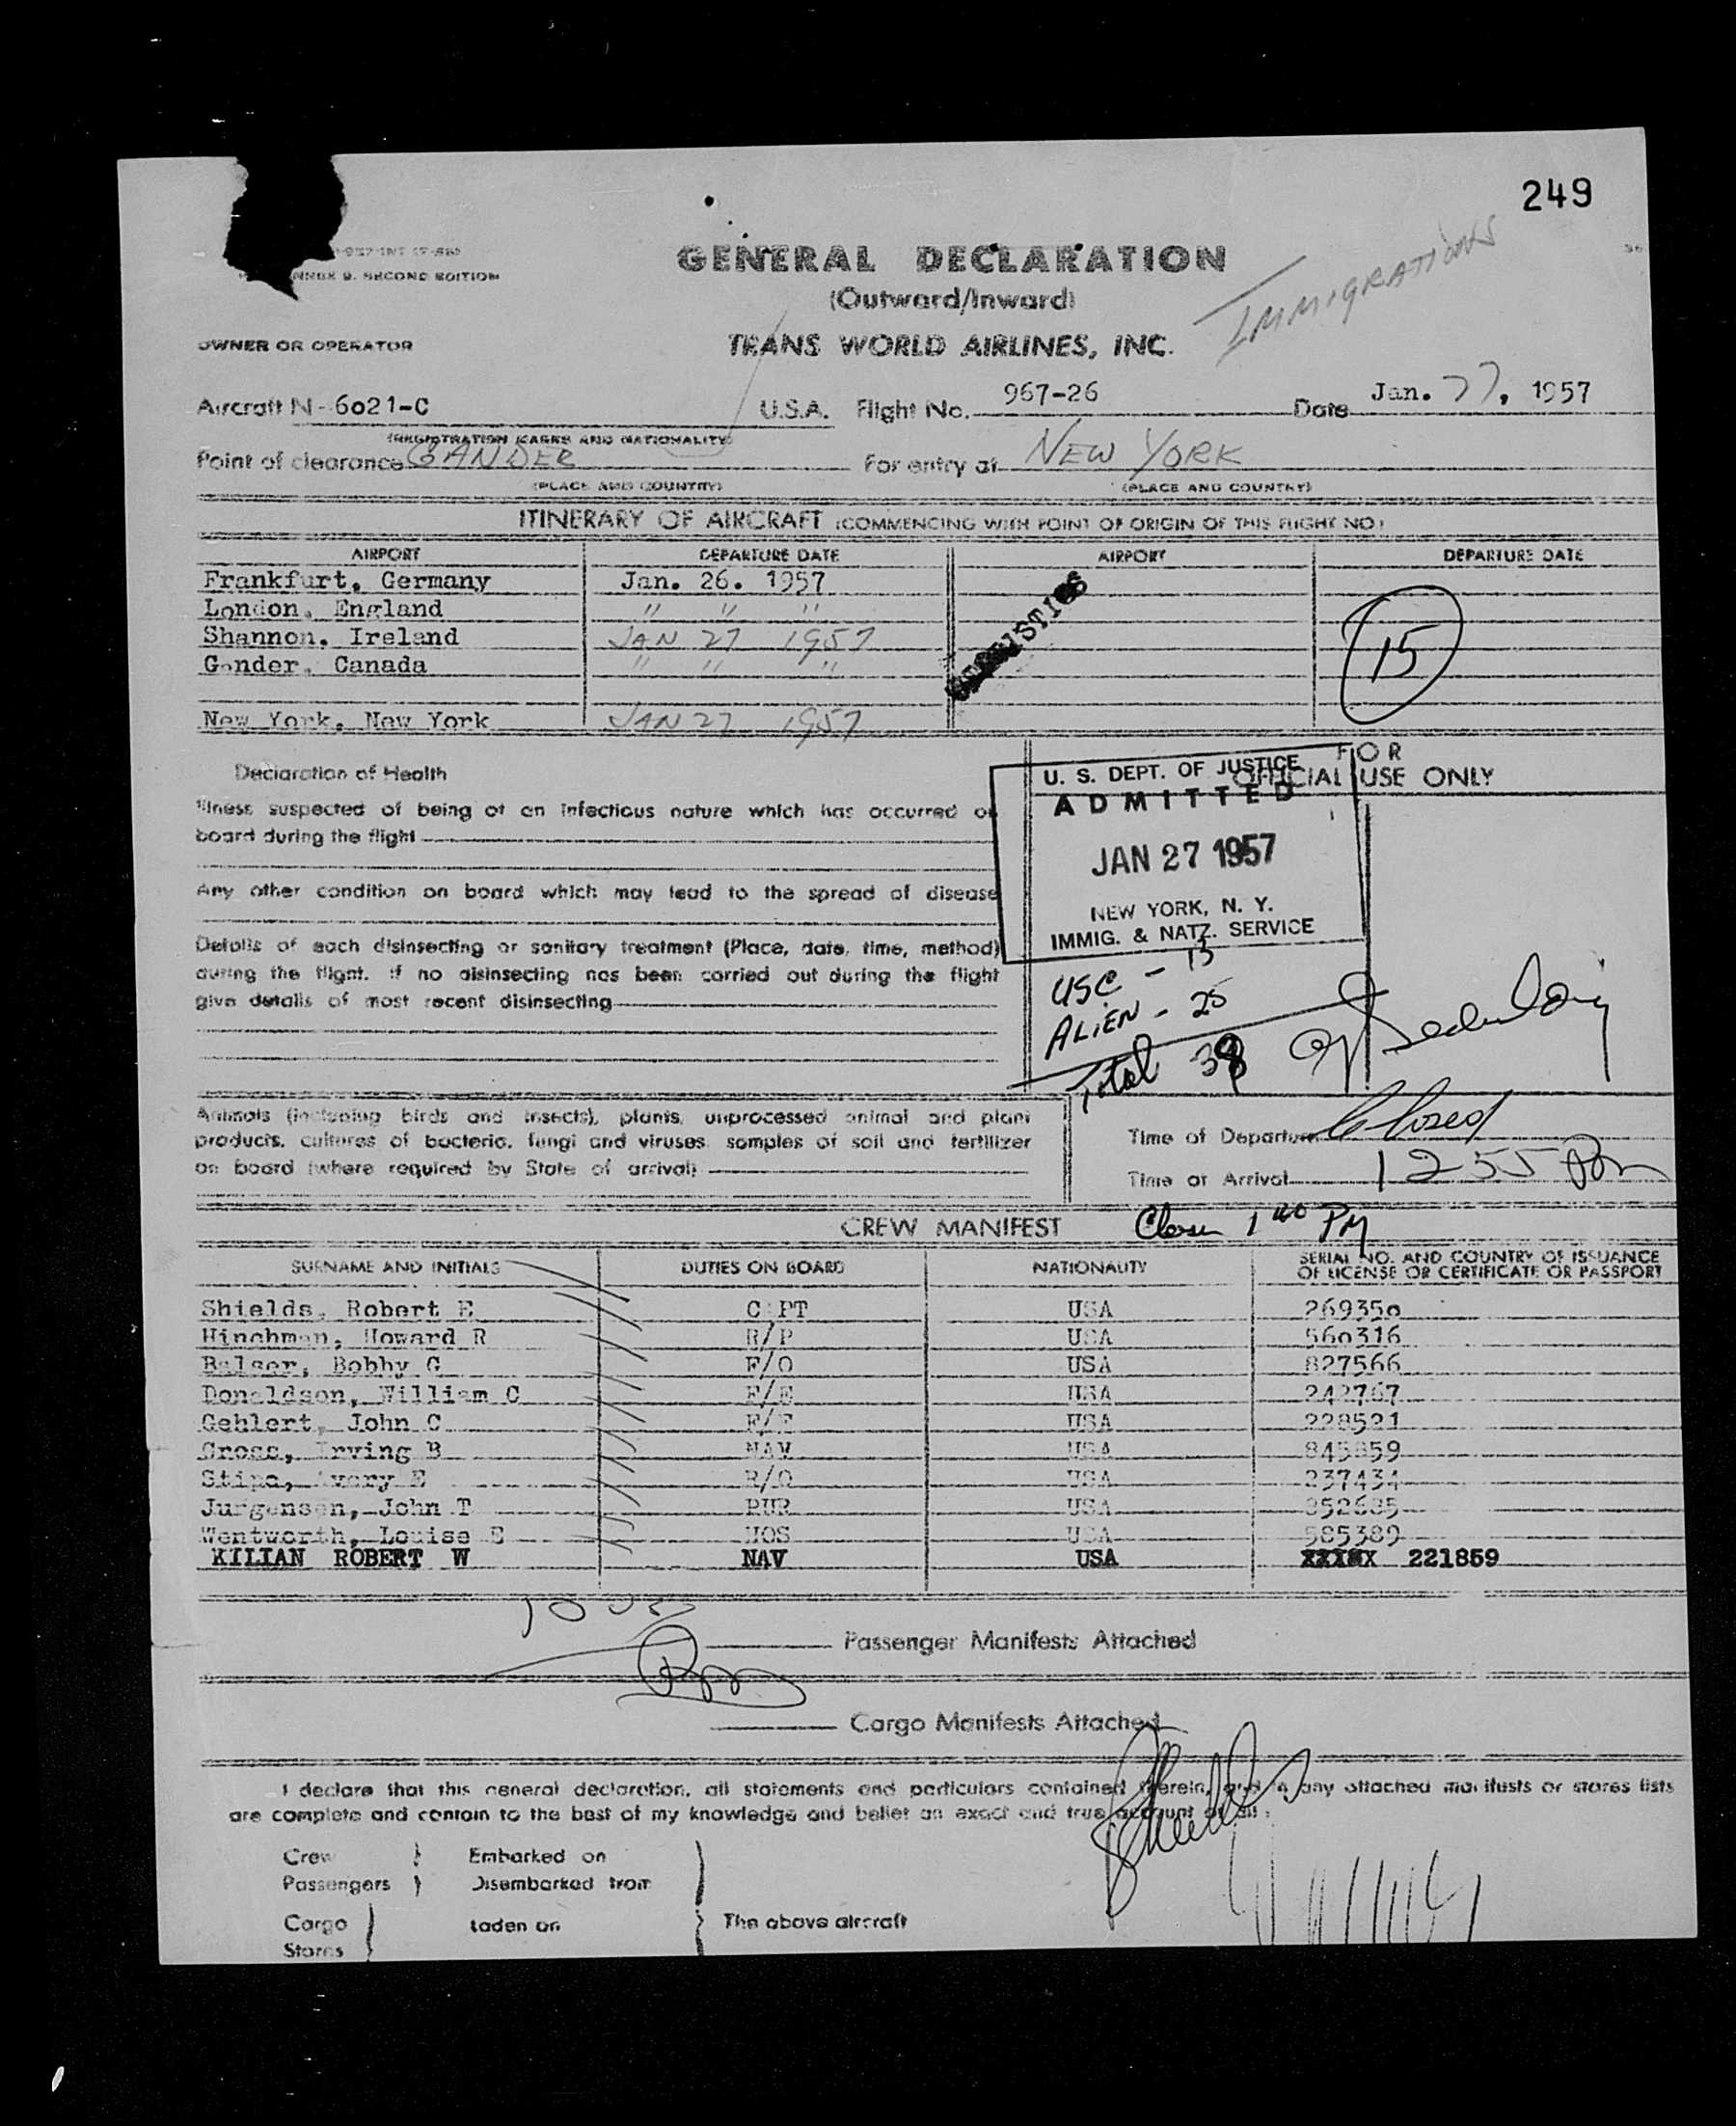 249
ANNEX 9. SECOND EDITION
GENERAL DECLARATION
(Outward/Inward)
IMMIGRATIONS
OWNER OR OPERATOR
TRANS WORLD AIRLINES, INC.
Aircraft N-6021-C U.S.A. Flight No. 967-26 Date Jan. 27, 1957
(REGISTRATION MARKS AND NATIONALITY)
Point of clearance GANDER For entry at NEW YORK
(PLACE AND COUNTRY) (PLACE AND COUNTRY)
ITINERARY OF AIRCRAFT (COMMENCING WITH POINT OF ORIGIN OF THIS FLIGHT NO)
AIRPORT DEPARTURE DATE AIRPORT DEPARTURE DATE
Frankfurt, Germany Jan. 26. 1957
London, England " " "
Shannon, Ireland JAN 27 1957
Gander, Canada " " "
15
New York, New York JAN 27 1957
Declaration of Health
FOR
OFFICIAL USE ONLY
Illness suspected of being of an infectious nature which has occurred on
board during the flight
Any other condition on board which may lead to the spread of disease
Details of each disinsecting or sanitary treatment (Place, date, time, method)
during the flight. If no disinsecting has been carried out during the flight
give details of most recent disinsecting
U. S. DEPT. OF JUSTICE
ADMITTED
JAN 27 1957
NEW YORK, N. Y.
IMMIG. & NATZ. SERVICE
USC - 13
ALIEN - 25
Total 38
Animals (including birds and insects), plants, unprocessed animal and plant
products, cultures of bacteria, fungi and viruses, samples of soil and fertilizer
on board (where required by State of arrival)
Time of Departure Closed
Time of Arrival 1255 Pm
CREW MANIFEST
Close 1 40 PM
SURNAME AND INITIALS DUTIES ON BOARD NATIONALITY SERIAL NO. AND COUNTRY OF ISSUANCE
OF LICENSE OR CERTIFICATE OR PASSPORT
Shields, Robert E CAPT USA 269350
Hinchman, Howard R R/P USA 560316
Balser, Bobby G F/O USA 827566
Donaldson, William C F/E USA 242767
Gehlert, John C F/E USA 228521
Gross, Irving B NAV USA
Stipa, Avery E R/O USA 237434
Jurgensen, John T PUR USA 352635
Wentworth, Louise E HOS USA 585389
KILIAN ROBERT W NAV USA XXXXX 221859
Passenger Manifests Attached
Cargo Manifests Attached
I declare that this general declaration, all statements and particulars contained therein, and in any attached manifests or stores lists
are complete and contain to the best of my knowledge and belief an exact and true account of all:
Crew } Embarked on }
Passengers } Disembarked from
Cargo } Laden on } The above aircraft
Stores